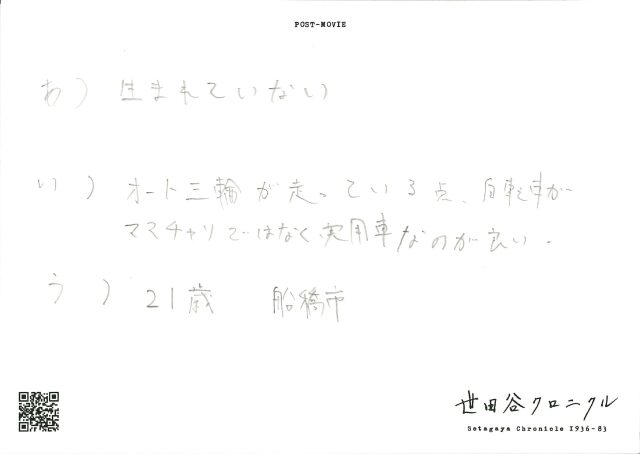 POST-MOVIE
あ) 生まれていない
い) オート三輪が走っている点、自転車が
ママチャリではなく実用車なのが良い。
う) 21歳 船橋市
世田谷クロニクル
Setagaya Chronicle 1936-83